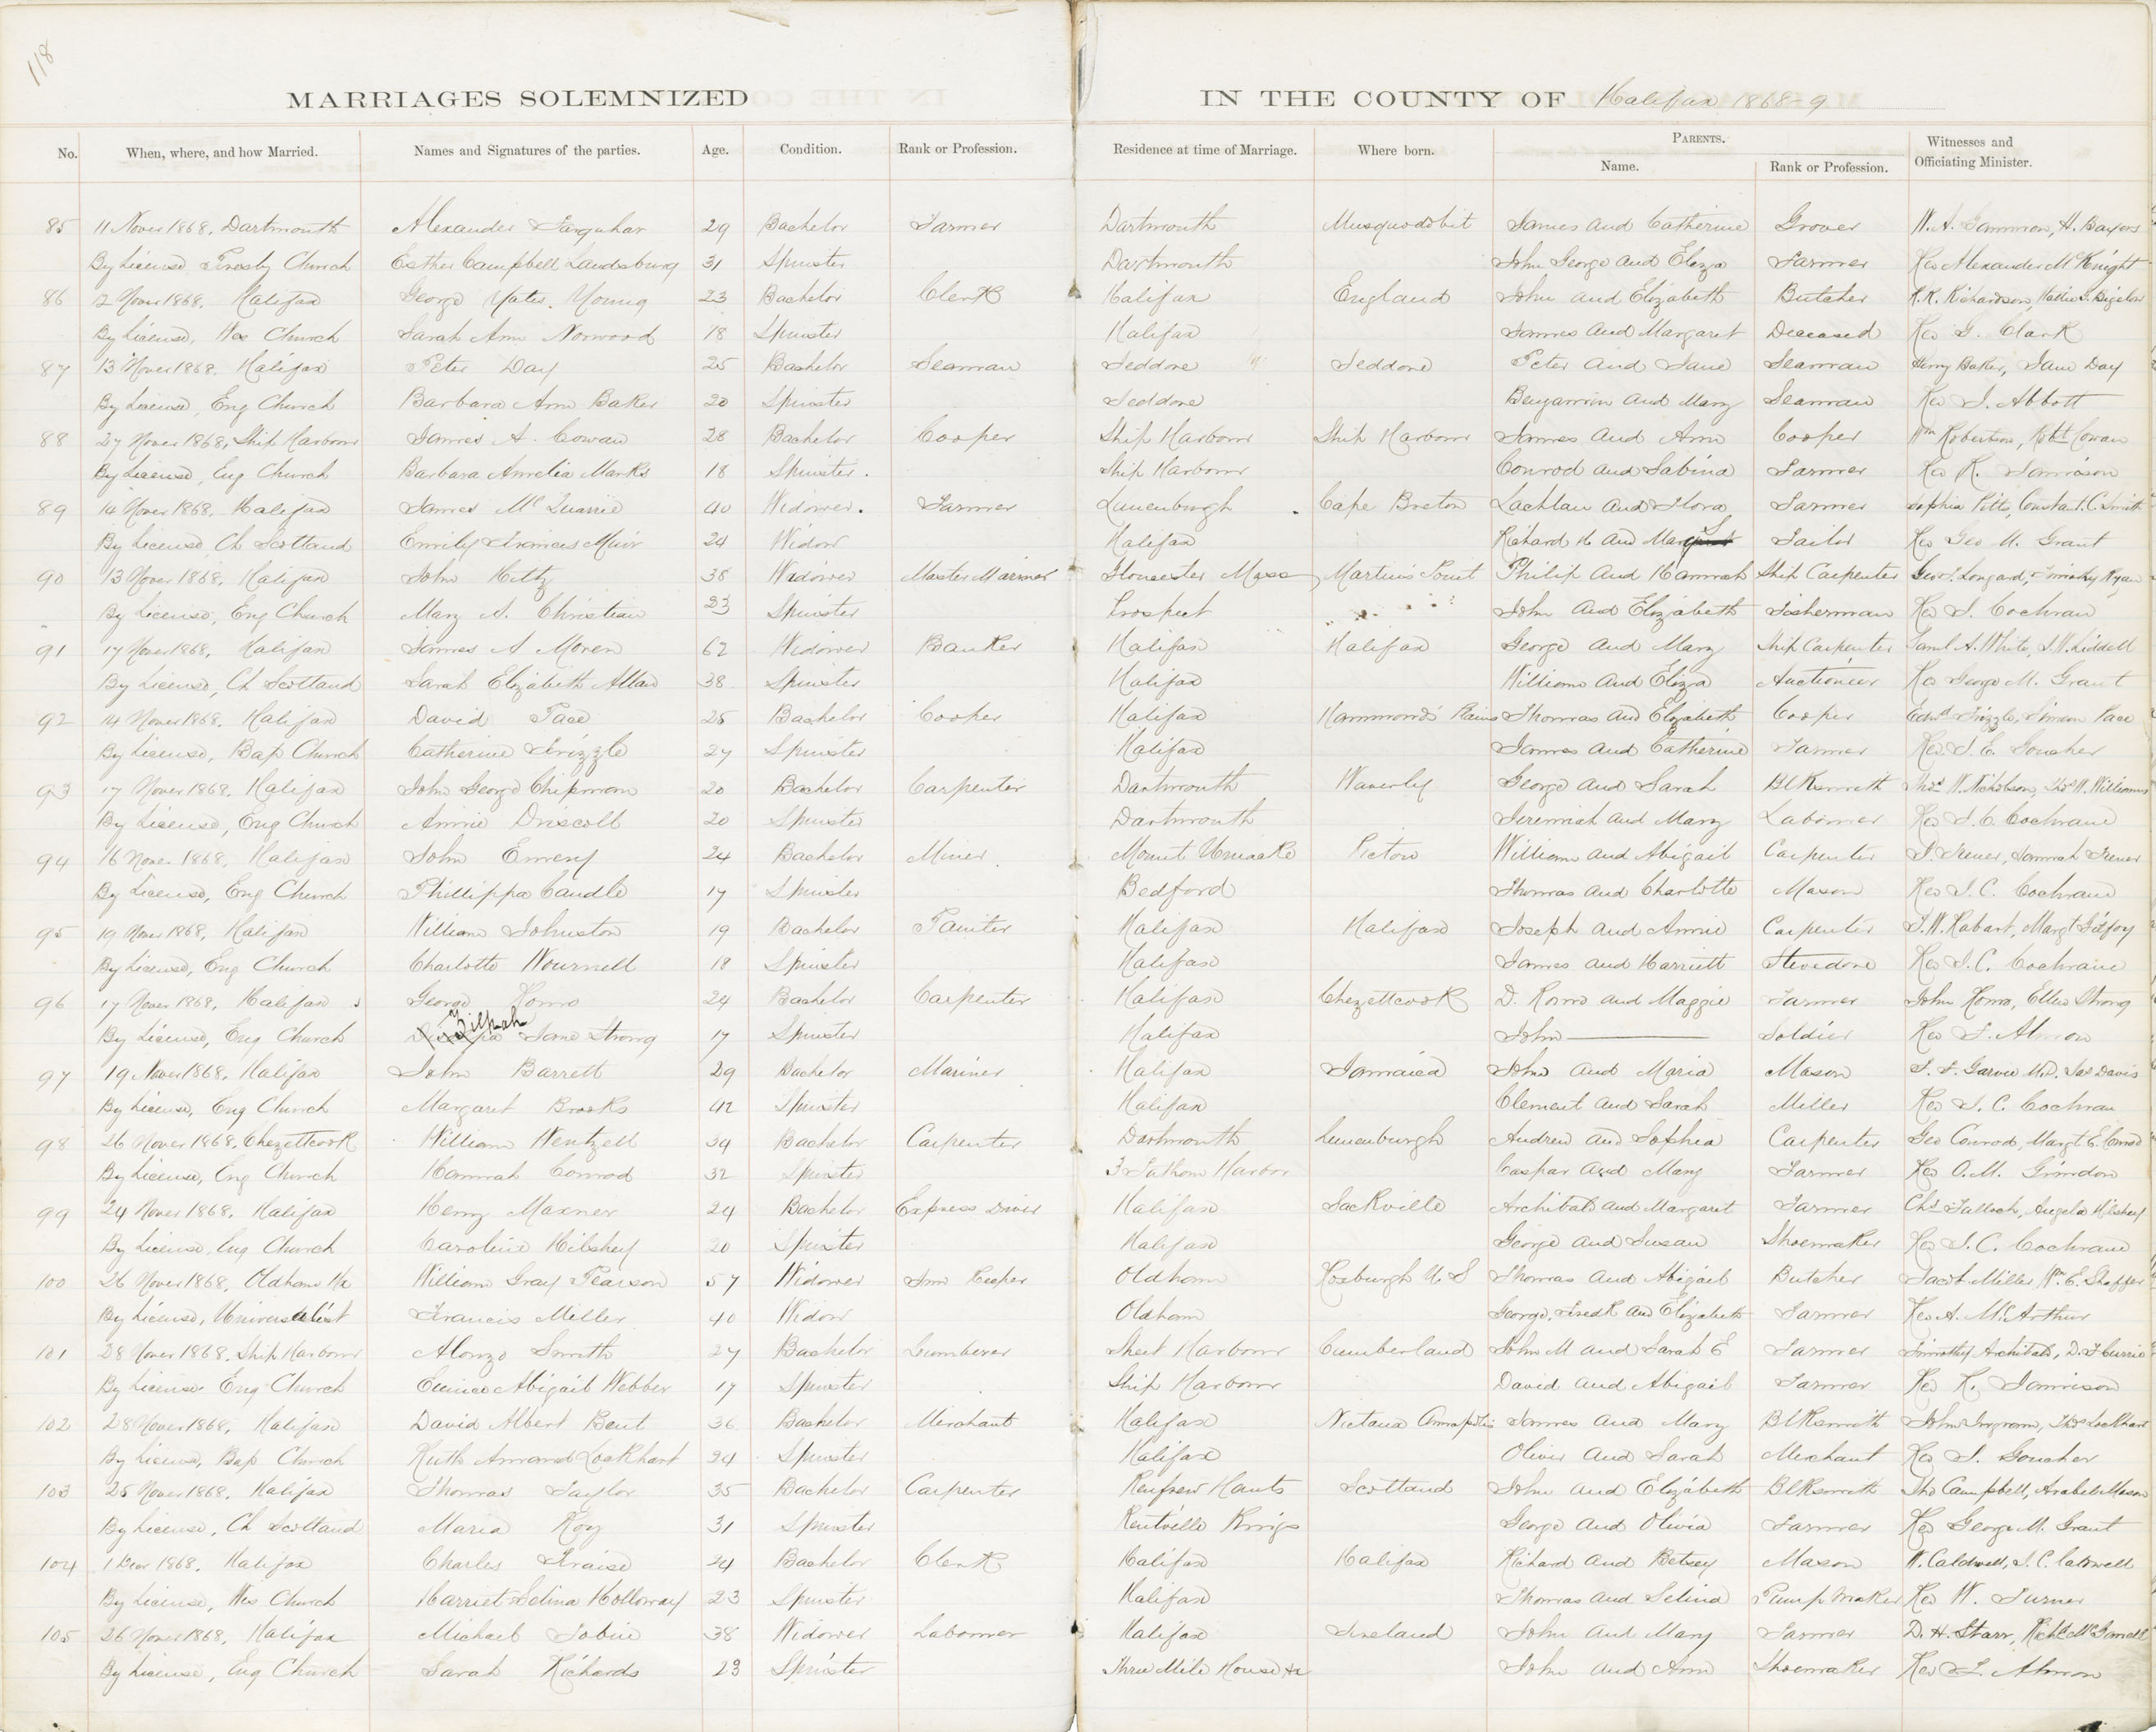 118
MARRIAGES SOLEMNIZED IN THE COUNTY OF Halifax 1868-9
No. When, where, and how Married. Names and Signatures of the parties. Age. Condition. Rank or Profession. Residence at time of Marriage. Where born. PARENTS. Name. Rank or Profession. Witnesses and Officiating Minister.
85 11 Nover 1868, Dartmouth Alexander Farquhar 29 Bachelor Farmer Dartmouth Musquodobit James and Catherine Grover W. A. Gammon, H. Bayers
By License Presby Church Esther Campbell Landsburg 31 Spinster Dartmouth John George and Eliza Farmer Rev Alexander McKnight
86 12 Nover 1868. Halifax George Yates Young 23 Bachelor Clerk Halifax England John and Elizabeth Butcher R. R. Richardson, S. Bigelow
By License, Wes Church Sarah Ann Norwood 18 Spinster Halifax James and Margaret Deceased Rev G. Clark
87 13 Nover 1868. Halifax Peter Day 25 Bachelor Seaman Jeddore Jeddore Peter and Jane Seaman Henry Baker, Jane Day
By License, Eng Church Barbara Ann Baker 20 Spinster Jeddore Benjamin and Mary Seaman Rev J. Abbott
88 27 Nover 1868, Ship Harbour James A. Cowan 28 Bachelor Cooper Ship Harbour Ship Harbour James and Ann Cooper Wm Robertson, Robt Cowan
By License, Eng Church Barbara Amelia Marks 18 Spinster. Ship Harbour Conrod and Sabina Farmer Rev R. Jamison
89 14 Nover 1868. Halifax James McQuarrie 40 Widower. Farmer Lunenburgh Cape Breton Lachlan and Flora Farmer Sophia Pitts, Constant. C. Smith
By License, Ch Scotland Emily Francis Muir 24 Widow Halifax Richard H and Mary Tailor Rev Geo M. Grant
90 13 Nover 1868, Halifax John Hiltz 38 Widower Master Mariner Gloucester Mass Martins Point Philip and Hannah Ship Carpenter Geo. Longard, Timothy Ryan
By License, Eng Church Mary A. Christian 23 Spinster Prospect John and Elizabeth Fisherman Rev J. Cochran
91 17 Nover 1868, Halifax James A Moren 62 Widower Banker Halifax Halifax George and Mary Ship Carpenter Saml A. White, J. W. Liddell
By License, Ch Scotland Sarah Elizabeth Allan 38 Spinster Halifax William and Eliza Auctioneer Rev George M. Grant
92 14 Nover 1868. Halifax David Pace 25 Bachelor Cooper Halifax Hammonds Plains Thomas and Elizabeth Cooper Edwd Frizzle, Simeon Pace
By License, Bap Church Catherine Frizzle 27 Spinster Halifax James and Catherine Farmer Rev. J. E. Goucher
93 17 Nover 1868. Halifax John George Chipman 20 Bachelor Carpenter Dartmouth Waverly George and Sarah Blksmith Thos W. Nicholson, Thos W. Williams
By License, Eng Church Annie Driscoll 20 Spinster Dartmouth Jeremiah and Mary Labourer Rev J. C. Cochrane
94 16 Nover 1868, Halifax John Emery 24 Bachelor Miner Mount Uniacke Pictou William and Abigail Carpenter
By License, Eng Church Phillippa Caudle 17 Spinster Bedford Thomas and Charlotte Mason Rev J. C. Cochrane
95 19 Nover 1868, Halifax William Johnston 19 Bachelor Painter Halifax Halifax Joseph and Annie Carpenter J. W. Rabart, Margt
By License, Eng Church Charlotte Wournell 18 Spinster Halifax James and Harriett Stevedore Rev J. C. Cochrane
96 17 Nover 1868, Halifax George Romo 24 Bachelor Carpenter Halifax Chezettcook D. Romo and Maggie Farmer John Romo, Ellen Strong
By License, Eng Church Zilpah Jane Strong 17 Spinster Halifax John Soldier Rev F. Almon
97 19 Nover 1868, Halifax John Barrett 29 Bachelor Mariner Halifax Jamaica John and Maria Mason J. F. Garvie M.D. Jas Davis
By License, Eng Church Margaret Brooks 42 Spinster Halifax Clement and Sarah Miller Rev J. C. Cochran
98 26 Nover 1868, Chezettcook William Wentzell 34 Bachelor Carpenter Dartmouth Lunenburgh Andrew and Sophia Carpenter Geo Conrod, Margt E. Conrod
By License, Eng Church Hannah Conrod 32 Spinster 3 Fathom Harbor Caspar and Mary Farmer Rev O. M. Grindon
99 24 Nover 1868. Halifax Henry Maxner 24 Bachelor Express Driver Halifax Sackville Archibald and Margaret Farmer Chs Tulloch, Angela Hilshey
By License, Eng Church Caroline Hilshey 20 Spinster Halifax George and Susan Shoemaker Rev J. C. Cochrane
100 26 Nover 1868, Oldham Hx William Gray Pearson 57 Widower Inn Keeper Oldham Roxburgh U S Thomas and Abigail Butcher Jacob Miller, Wm E. Shaffer
By License, Universalist Francis Miller 40 Widow Oldham George, Fredk and Elizabeth Farmer Rev A. McArthur
101 28 Nover 1868. Ship Harbour Alonzo Smith 27 Bachelor Lumberer Sheet Harbour Cumberland John M and Sarah E Farmer Timothy Archibald, D. F Currie
By License. Eng Church Eunice Abigail Webber 17 Spinster Ship Harbour David and Abigail Farmer Rev R. Jamison
102 28 Nover 1868. Halifax David Albert Bent 36 Bachelor Merchant Halifax Nictaux Annapolis James and Mary Blksmith John Ingram, Thos Lockhart
By License, Bap Church Ruth Amand Lockhart 24 Spinster Halifax Oliver and Sarah Merchant Rev J. Goucher
103 25 Nover 1868. Halifax Thomas Taylor 35 Bachelor Carpenter Renfrew Hants Scotland John and Elizabeth Blksmith Campbell, Arabela Mason
By License, Ch Scotland Maria Roy 31 Spinster Kentville Kings George and Olivia Farmer Rev George M. Grant
104 1 Decr 1868. Halifax Charles Fraise 24 Bachelor Clerk Halifax Halifax Richard and Betsey Mason W. Caldwell, J. C. Caldwell
By License, Wes Church Harriet Selina Holloway 23 Spinster Halifax Thomas and Selina Pump Maker Rev W. Turner
105 26 Nover 1868, Halifax Michael Tobin 38 Widower Labourer Halifax Ireland John and Mary Farmer D. H. Starr, Richd
By License, Eng Church Sarah Richards 23 Spinster Three Mile House Hx John and Ann Shoemaker Rev F. Almon